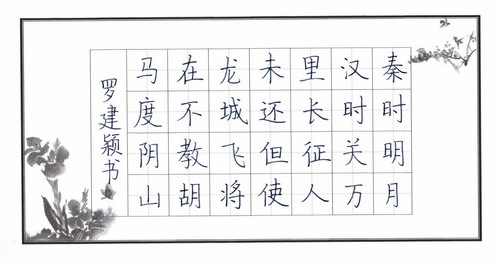 秦时明月
汉时关万
里长征人
未还但使
龙城飞将
在不教胡
马度阴山
罗建颖书